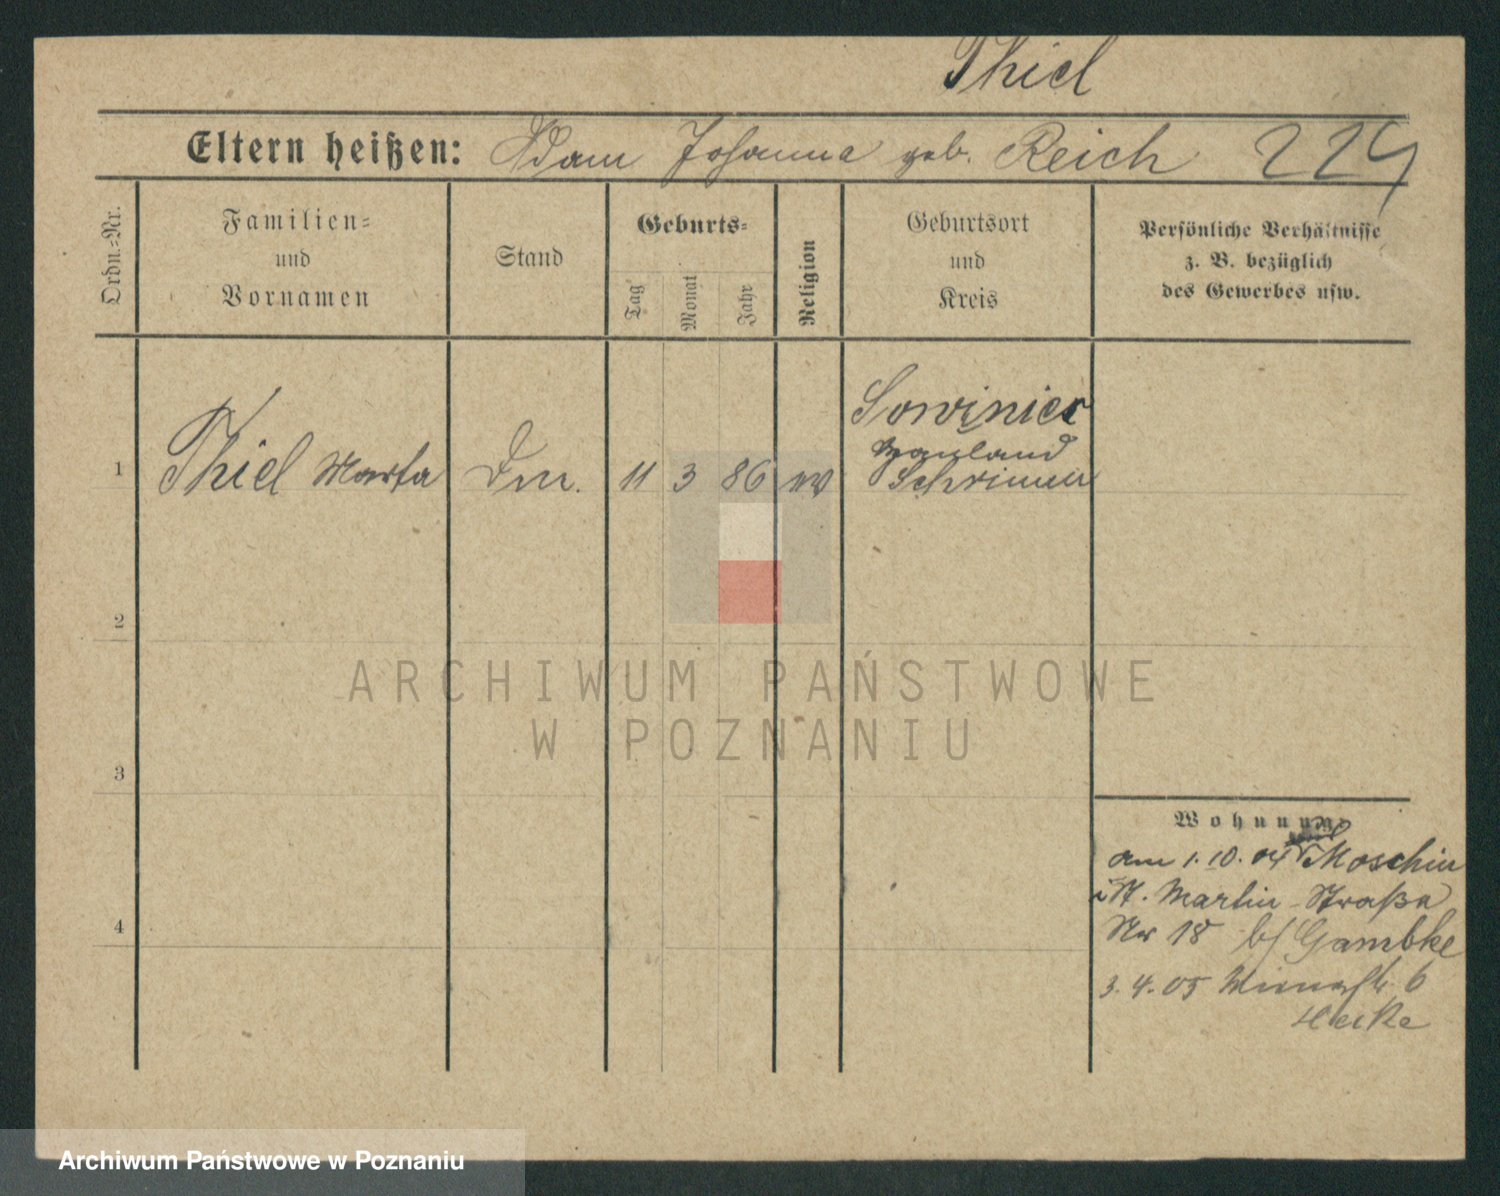 Thiel
Eltern heißen: Adam Johanna geb. Reich 224
Ordn.-Nr.
Familien-
und
Vornamen
Stand
Geburts-
Tag
Monat
Jahr
Religion
Geburtsort
und
Kreis
Persönliche Verhältnisse
z. B. bezüglich
des Gewerbes usw.
1 Thiel Marta 11 3 86 ev
Sowiniec
Hauland
Schrimm
2
3
4
Wohnung
am 1. 10. 04 Moschin
St. Martin-Straße
Nr 18 b/ Gambke
3. 4. 05 6
Heike
ARCHIWUM PAŃSTWOWE
W POZNANIU
Archiwum Państwowe w Poznaniu